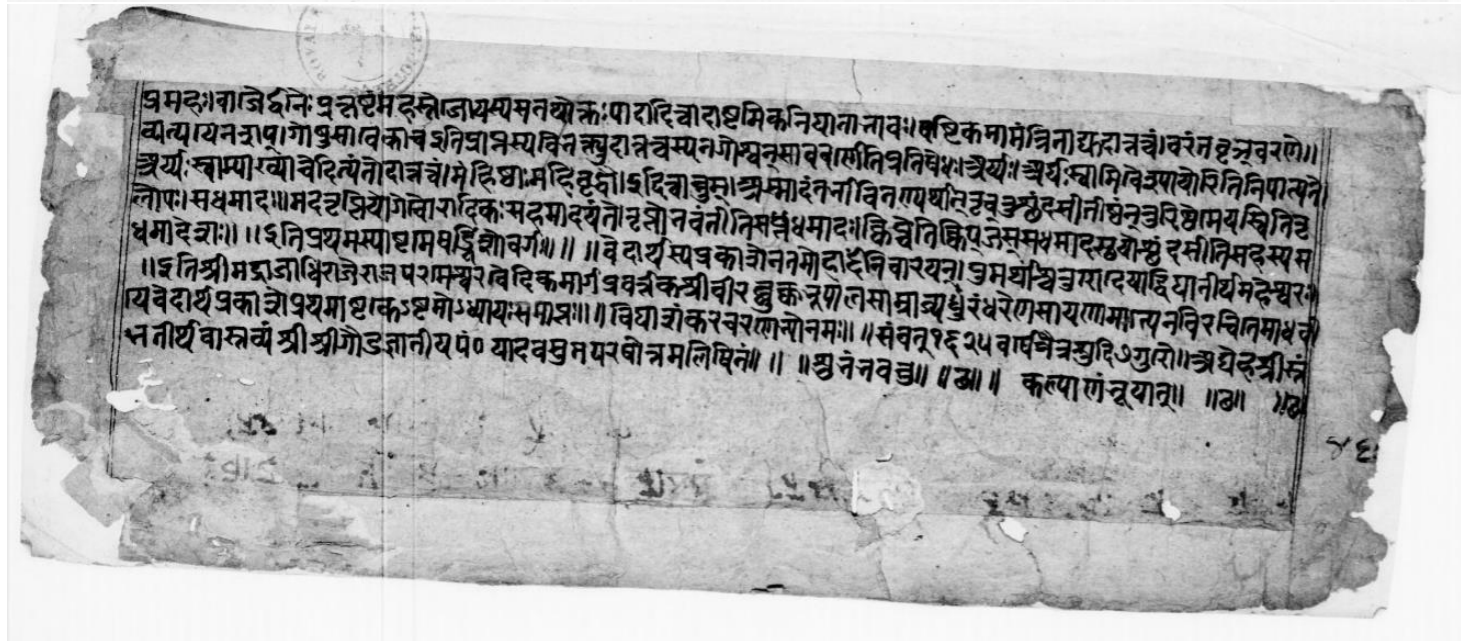 प्रमहः। वाजैर्हविः प्रकृष्टं महस्तेजो यस्य स तथोक्तः पादादित्वादाष्टमिकनिघाताभावः। षाष्टिकमामंत्रिताद्युदात्तत्वं। वरंत वृञ् वरणे॥
व्यत्ययेन शप् गोषु सावेकाच इति प्राप्तस्य विभक्त्युदात्तत्वस्य न गोश्वन्साववर्णेति प्रतिषेधः। अर्यः। अर्यः स्वामिवैश्ययोरिति निपात्यते
अर्यः स्वाम्याख्यां चेदित्यंतोदात्तत्वं। मंहिष्ठाः महि वृद्धौ। इदित्वान्नुम्। अस्मादंतर्भावितण्यर्थात् तृच् तुश्छंदसीतीष्ठन् तुरिष्ठेमेयस्स्विति तृ
लोपः। सधमादः॥ मद तृप्तियोगे चौरादिकः सह मादयंते तृप्ता भवंतीति सधमादः। क्विप्चेति क्विप् जस् सधमादस्थयोश्छंदसीति सहस्य स
धमादेशः॥ ॥इति प्रथमस्याष्टमे षड्विंशो वर्गः॥ ॥ ॥वेदार्थस्य प्रकाशेन तमो हार्दं निवारयन्। पुमर्थांश्चतुरो देयाद्विद्यातीर्थमहेश्वरः॥
॥इति श्रीमद्राजाधिराजराजपरमेश्वरवैदिकमार्गप्रवर्त्तकश्रीवीरबुक्कभूपालसाम्राज्यधुरंधरेण सायणामात्येन विरचिते माधवी
ये वेदार्थप्रकाशे प्रथमाष्टकेऽष्टमोऽध्यायः समाप्तः॥॥ विद्याशंकरचरणेभ्यो नमः॥ ॥ संवत् १६२५ वर्षे चैत्रशुदि ७ गुरौ॥ अद्येह श्रीस्तं
भतीर्थवास्तव्यं श्रीश्रीगौडज्ञातीय पं० यादवसुत लिखितं॥ ॥ ॥ शुभं भवतु॥ ॥छ॥ ॥ कल्याणं भूयात्॥ ॥छ॥ ॥छ॥